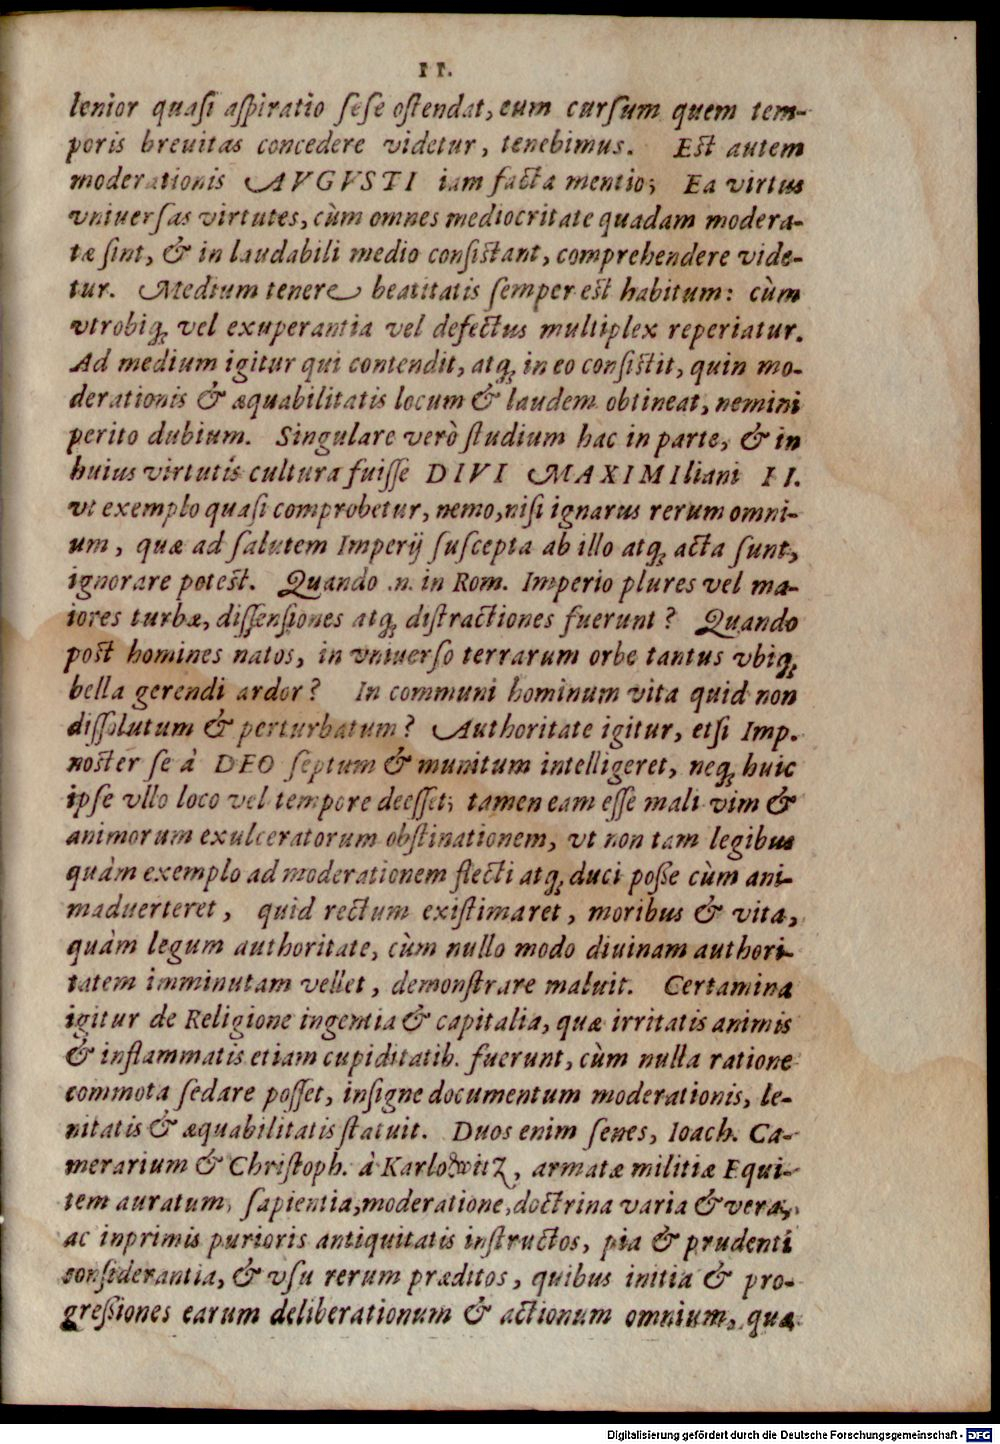 11.
lenior quasi aspiratio sese ostendat, eum cursum quem tem-
poris breuitas concedere videtur, tenebimus. Est autem
moderationis AVGVSTI iam facta mentio; Ea virtus
vniuersas virtutes, cùm omnes mediocritate quadam modera-
tæ sint, & in laudabili medio consistant, comprehendere vide-
tur. Medium tenere beatitatis semper est habitum: cùm
vtrobiq; vel exuperantia vel defectus multiplex reperiatur.
Ad medium igitur qui contendit, atq; in eo consistit, quin mo-
derationis & æquabilitatis locum & laudem obtineat, nemini
perito dubium. Singulare verò studium hac in parte, & in
huius virtutis cultura fuisse DIVI MAXIMIliani II.
vt exemplo quasi comprobetur, nemo, nisi ignarus rerum omni-
um, quæ ad salutem Imperij suscepta ab illo atq; acta sunt,
ignorare potest. Quando .n. in Rom. Imperio plures vel ma-
iores turbæ, dissensiones atq; distractiones fuerunt? Quando
post homines natos, in vniuerso terrarum orbe tantus vbiq;
bella gerendi ardor? In communi hominum vita quid non
dissolutum & perturbatum? Authoritate igitur, etsi Imp.
noster se à DEO septum & munitum intelligeret, neq; huic
ipse vllo loco vel tempore deesset; tamen eam esse mali vim &
animorum exulceratorum obstinationem, vt non tam legibus
quàm exemplo ad moderationem flecti atq; duci posse cùm ani-
maduerteret, quid rectum existimaret, moribus & vita,
quàm legum authoritate, cùm nullo modo diuinam authori-
tatem imminutam vellet, demonstrare maluit. Certamina
igitur de Religione ingentia & capitalia, quæ irritatis animis
& inflammatis etiam cupiditatib. fuerunt, cùm nulla ratione
commota sedare posset, insigne documentum moderationis, le-
nitatis & æquabilitatis statuit. Duos enim senes, Ioach. Ca-
merarium & Christoph. à Karlowitz, armatæ militiæ Equi-
tem auratum, sapientia, moderatione, doctrina varia & vera,
ac inprimis purioris antiquitatis instructos, pia & prudenti
considerantia, & vsu rerum præditos, quibus initia & pro-
gressiones earum deliberationum & actionum omnium, quæ
Digitalisierung gefördert durch die Deutsche Forschungsgemeinschaft - DFG